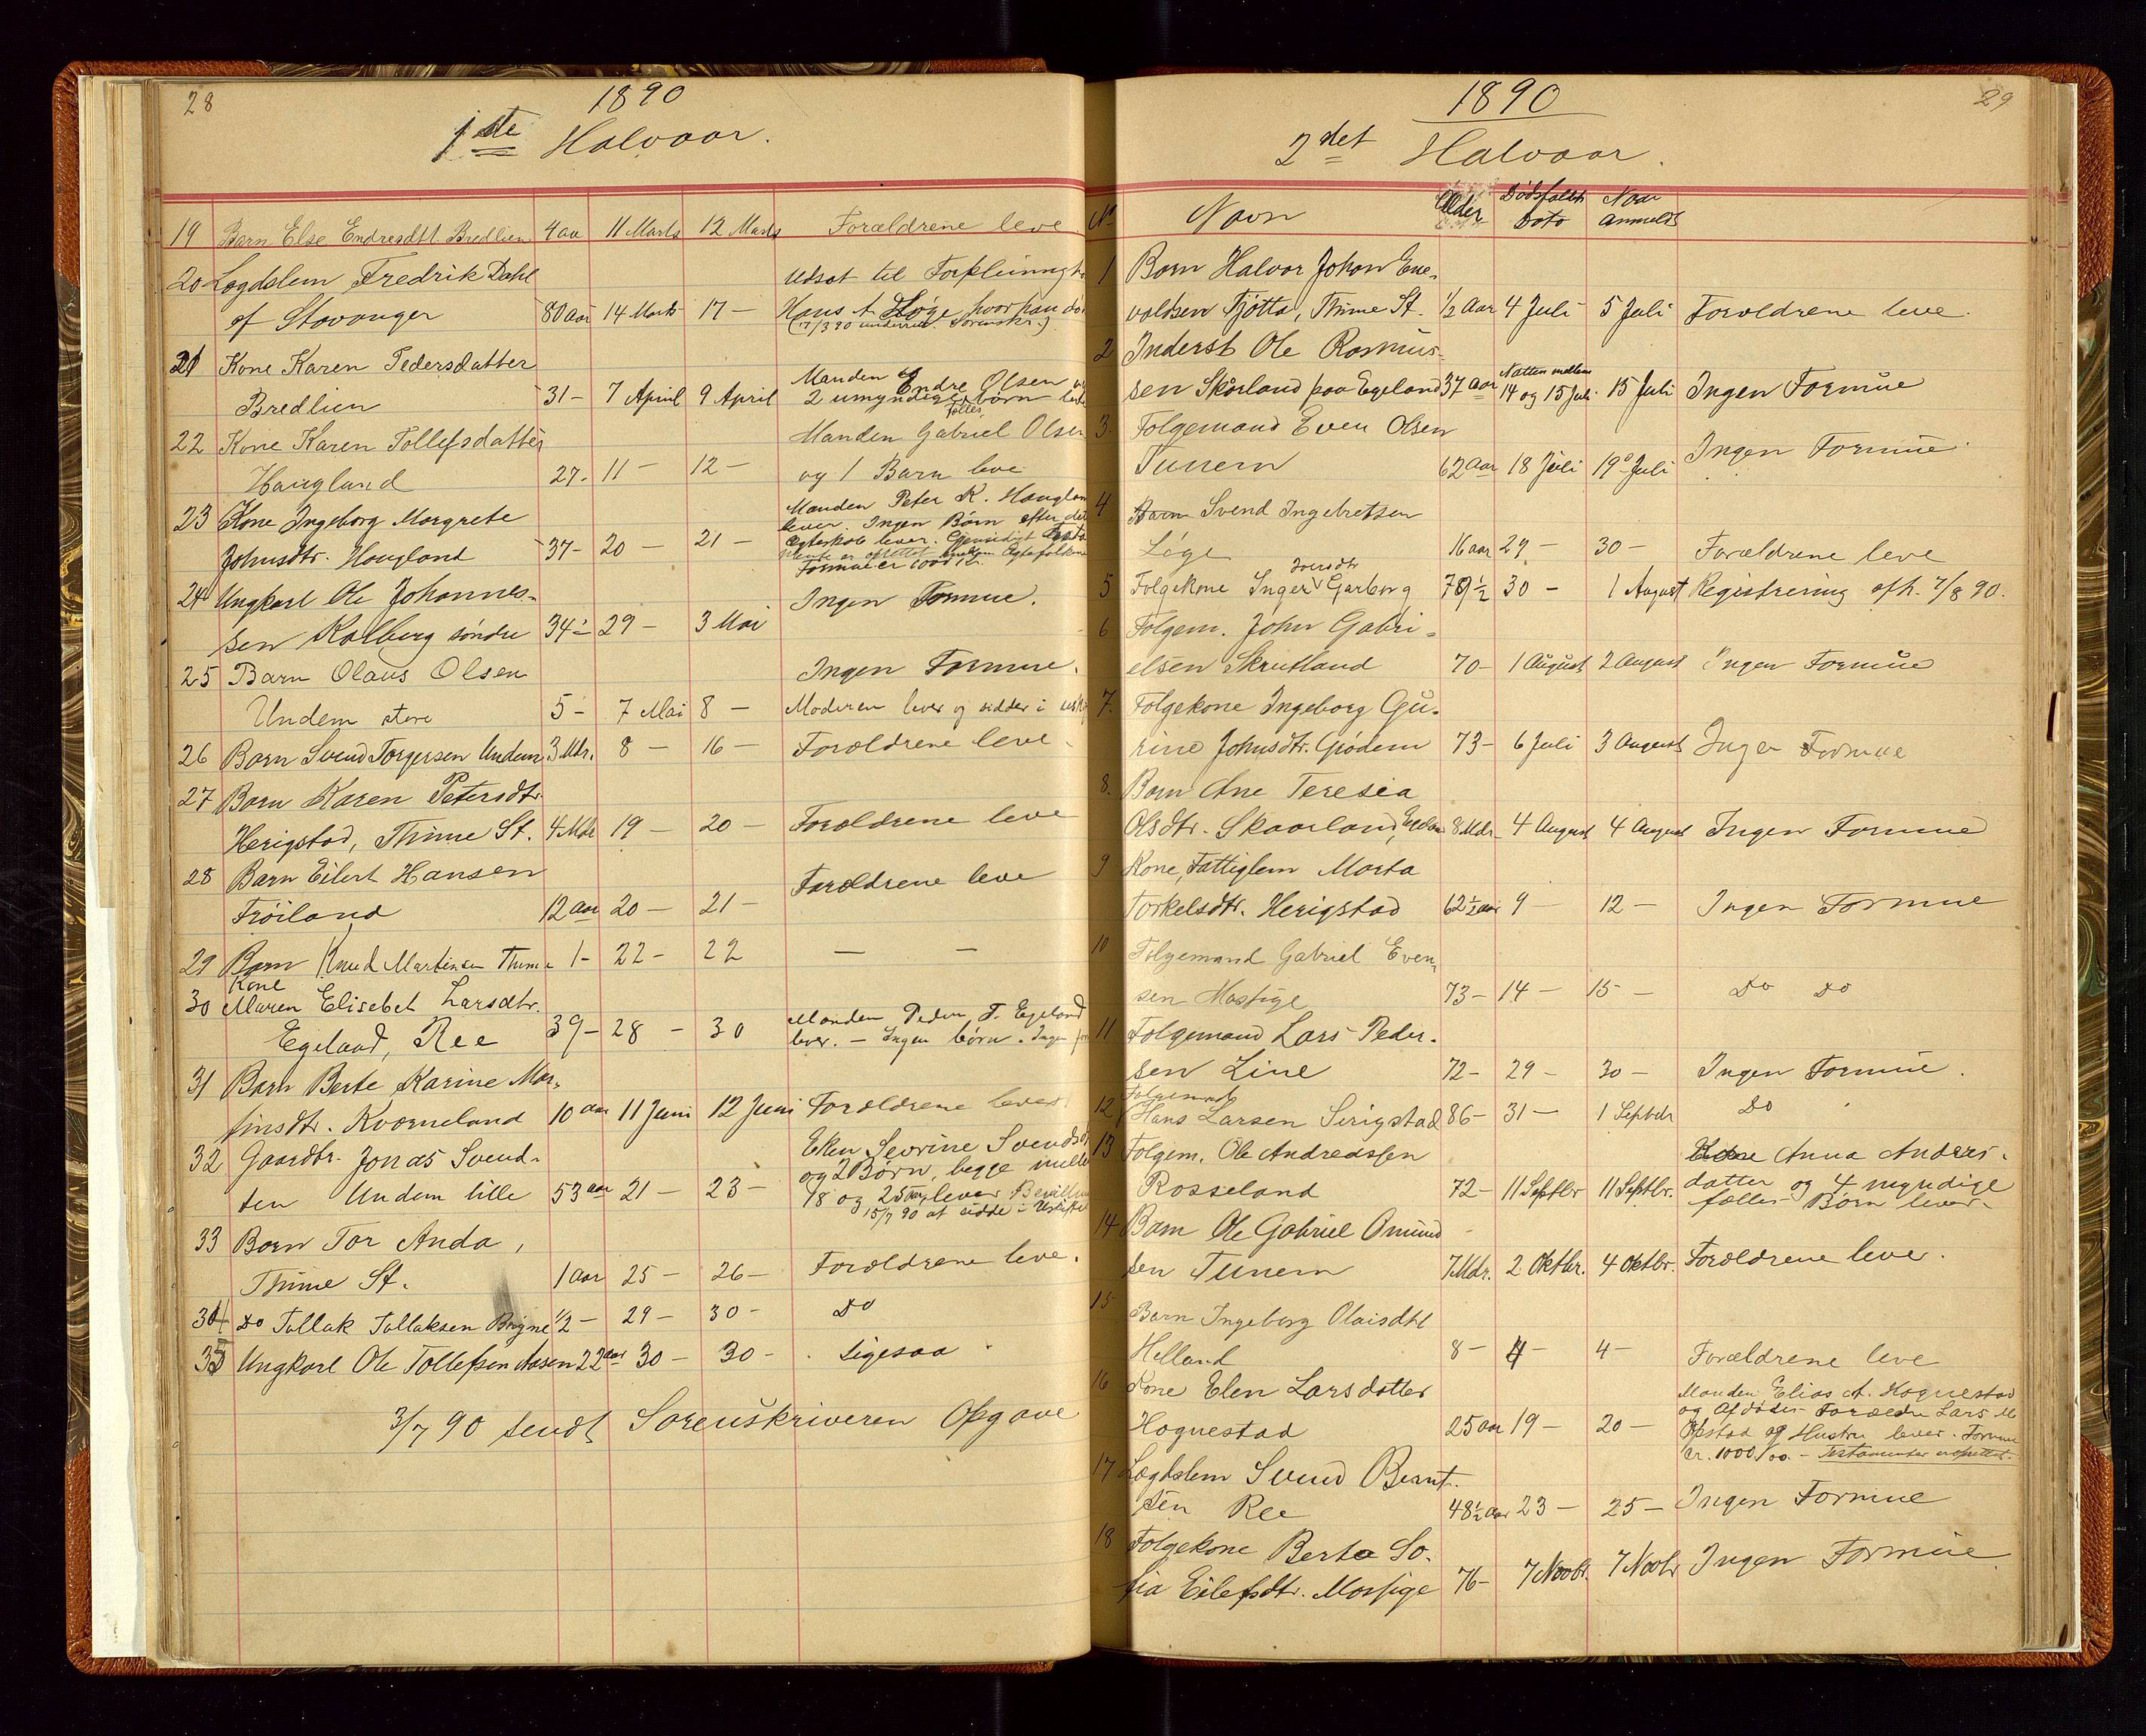 28
1890
1ste Halvaar.
19 Barn Else Endresdtt. Bredlien 4 aa 11 Marts 12 Marts Forældrene leve
20 Lægdslem Fredrik Dahl Udsat til Forpleining
af Stavanger 80 Aar 14 Marts 17 — Hans A. Høge, hvor han
(17/3 90 underret. Sorenskr.)
21 Kone Karen Pedersdatter
Bredlien 31 - 7 April 9 April Manden Endre Olsen
2 umyndige fælles børn
22 Kone Karen Tollefsdatter Manden Gabriel Olsen
Haugland 27 - 11 — 12 — og 1 Barn leve
23 Kone Ingeborg Margrete Manden Peter K.
Johnsdtr. Haugland 37 - 20 — 21 — lever. Ingen Børn efter
Ægteskab lever. Gjensidigt
er oprettet Ægtefolkene
Formue er 1000 Kr.
24 Ungkarl Ole Johannes-
sen Kalberg søndre 34 - 29 — 3 Mai Ingen Formue.
25 Barn Olaus Olsen Ingen Formue.
Undem store 5 - 7 Mai 8 — Moderen lever og sidder i
26 Barn Svend Torgersen Undem 3 Mdr. 8 — 16 — Forældrene leve
27 Barn Karen Petersdtr.
Herigstad, Thime St. 4 Mdr 19 — 20 — Forældrene leve
28 Barn Eilert Hansen
Frøiland 12 aar 20 — 21 — Forældrene leve
29 Barn Knud Martinsen Thime 1 - 22 - 22 — —
Kone
30 Maren Elisebet Larsdtr.
Egeland, Ree 39 - 28 - 30 Manden Peder T. Egeland
lever. — Ingen børn. Ingen
31 Barn Berte Karine Mar-
tinsdtr. Kværneland 10 aar 11 Juni 12 Juni Forældrene lever
32 Gaardbr. Jonas Svend- Eken Sevrine
sen Undem lille 53 aar 21 — 23 — og 2 Børn, begge
18 og 25 aar, lever
15/7 90 at sidde i
33 Barn Tor Anda,
Thime St. 1 Aar 25 — 26 — Forældrene leve.
34 Do Tollak Tollaksen Bryne 1/2 - 29 — 30 - Do
35 Ungkarl Ole Tollefsen Aasen 22 aar 30 — 30 - Ligesaa
3/7 90 sendt Sorenskriveren Opgave
29
1890
2det Halvaar.
No Navn Alder Dødsfaldets Dato Naar Anmeldt
1 Barn Halvor Johan Ene-
valdsen Tjøtta, Thime St. 1/2 Aar 4 Juli 5 Juli Forældrene leve.
2 Inderst Ole Rasmus-
sen Skårland paa Egeland 37 aar Natten mellem 14 og 15 Juli 15 Juli Ingen Formue
3. Folgemand Even Olsen
Tunem 62 aar 18 Juli 19 Juli Ingen Formue
4 Barn Svend Ingebretsen
Løge 16 aar 29 — 30 — Forældrene leve
5 Folgekone Inger Iversdtr Garborg 79 1/2 30 — 1 August Registrering afh. 7/8 90.
6 Folgem. John Gabri-
elsen Skrutland 70 - 1 August 2 August Ingen Formue
7. Folgekone Ingeborg Gu-
rine Johnsdtr. Grødem 73 - 6 Juli 3 August Ingen Formue
8. Barn Ane Teresia
Olsdtr. Skaarland, Egeland 8 Mdr. 4 August 4 August Ingen Formue
9 Kone, Fattiglem Marta
Torkelsdtr. Herigstad 62 1/2 aar 9 — 12 — Ingen Formue
10 Folgemand Gabriel Even-
sen Mossige 73 — 14 — 15 — Do Do
11 Folgemand Lars Peder-
sen Line 72 - 29 — 30 — Ingen Formue.
Folgemand
12 Hans Larsen Serigstad 86 - 31 — 1 Septbr Do
13 Folgem. Ole Andreassen Kone Anna Anders-
Rosseland 72 - 11 Septbr 11 Septbr. datter og 4 myndige
fælles Børn lever.
14 Barn Ole Gabriel Omund
sen Tunem 7 Mdr. 2 Oktbr. 4 Oktbr. Forældrene lever.
15 Barn Ingeborg Olaisdtt
Helland 8 - 4 - 4 - Forældrene leve
16 Kone Elen Larsdatter Manden Elias A. Hognestad
Hognestad 25 aar 19 — 20 — og Afdødes Forældre Lars M
Opstad og Hustru lever. Formue
kr. 1000.00. — Testamenter oprettet.
17 Lægdslem Svend Bernt-
sen Ree 48 1/2 aar 23 — 25 — Ingen Formue
18 Folgekone Berta So-
fia Eilefsdtr. Mossige 76 - 7 Novbr. 7 Novbr Ingen Formue